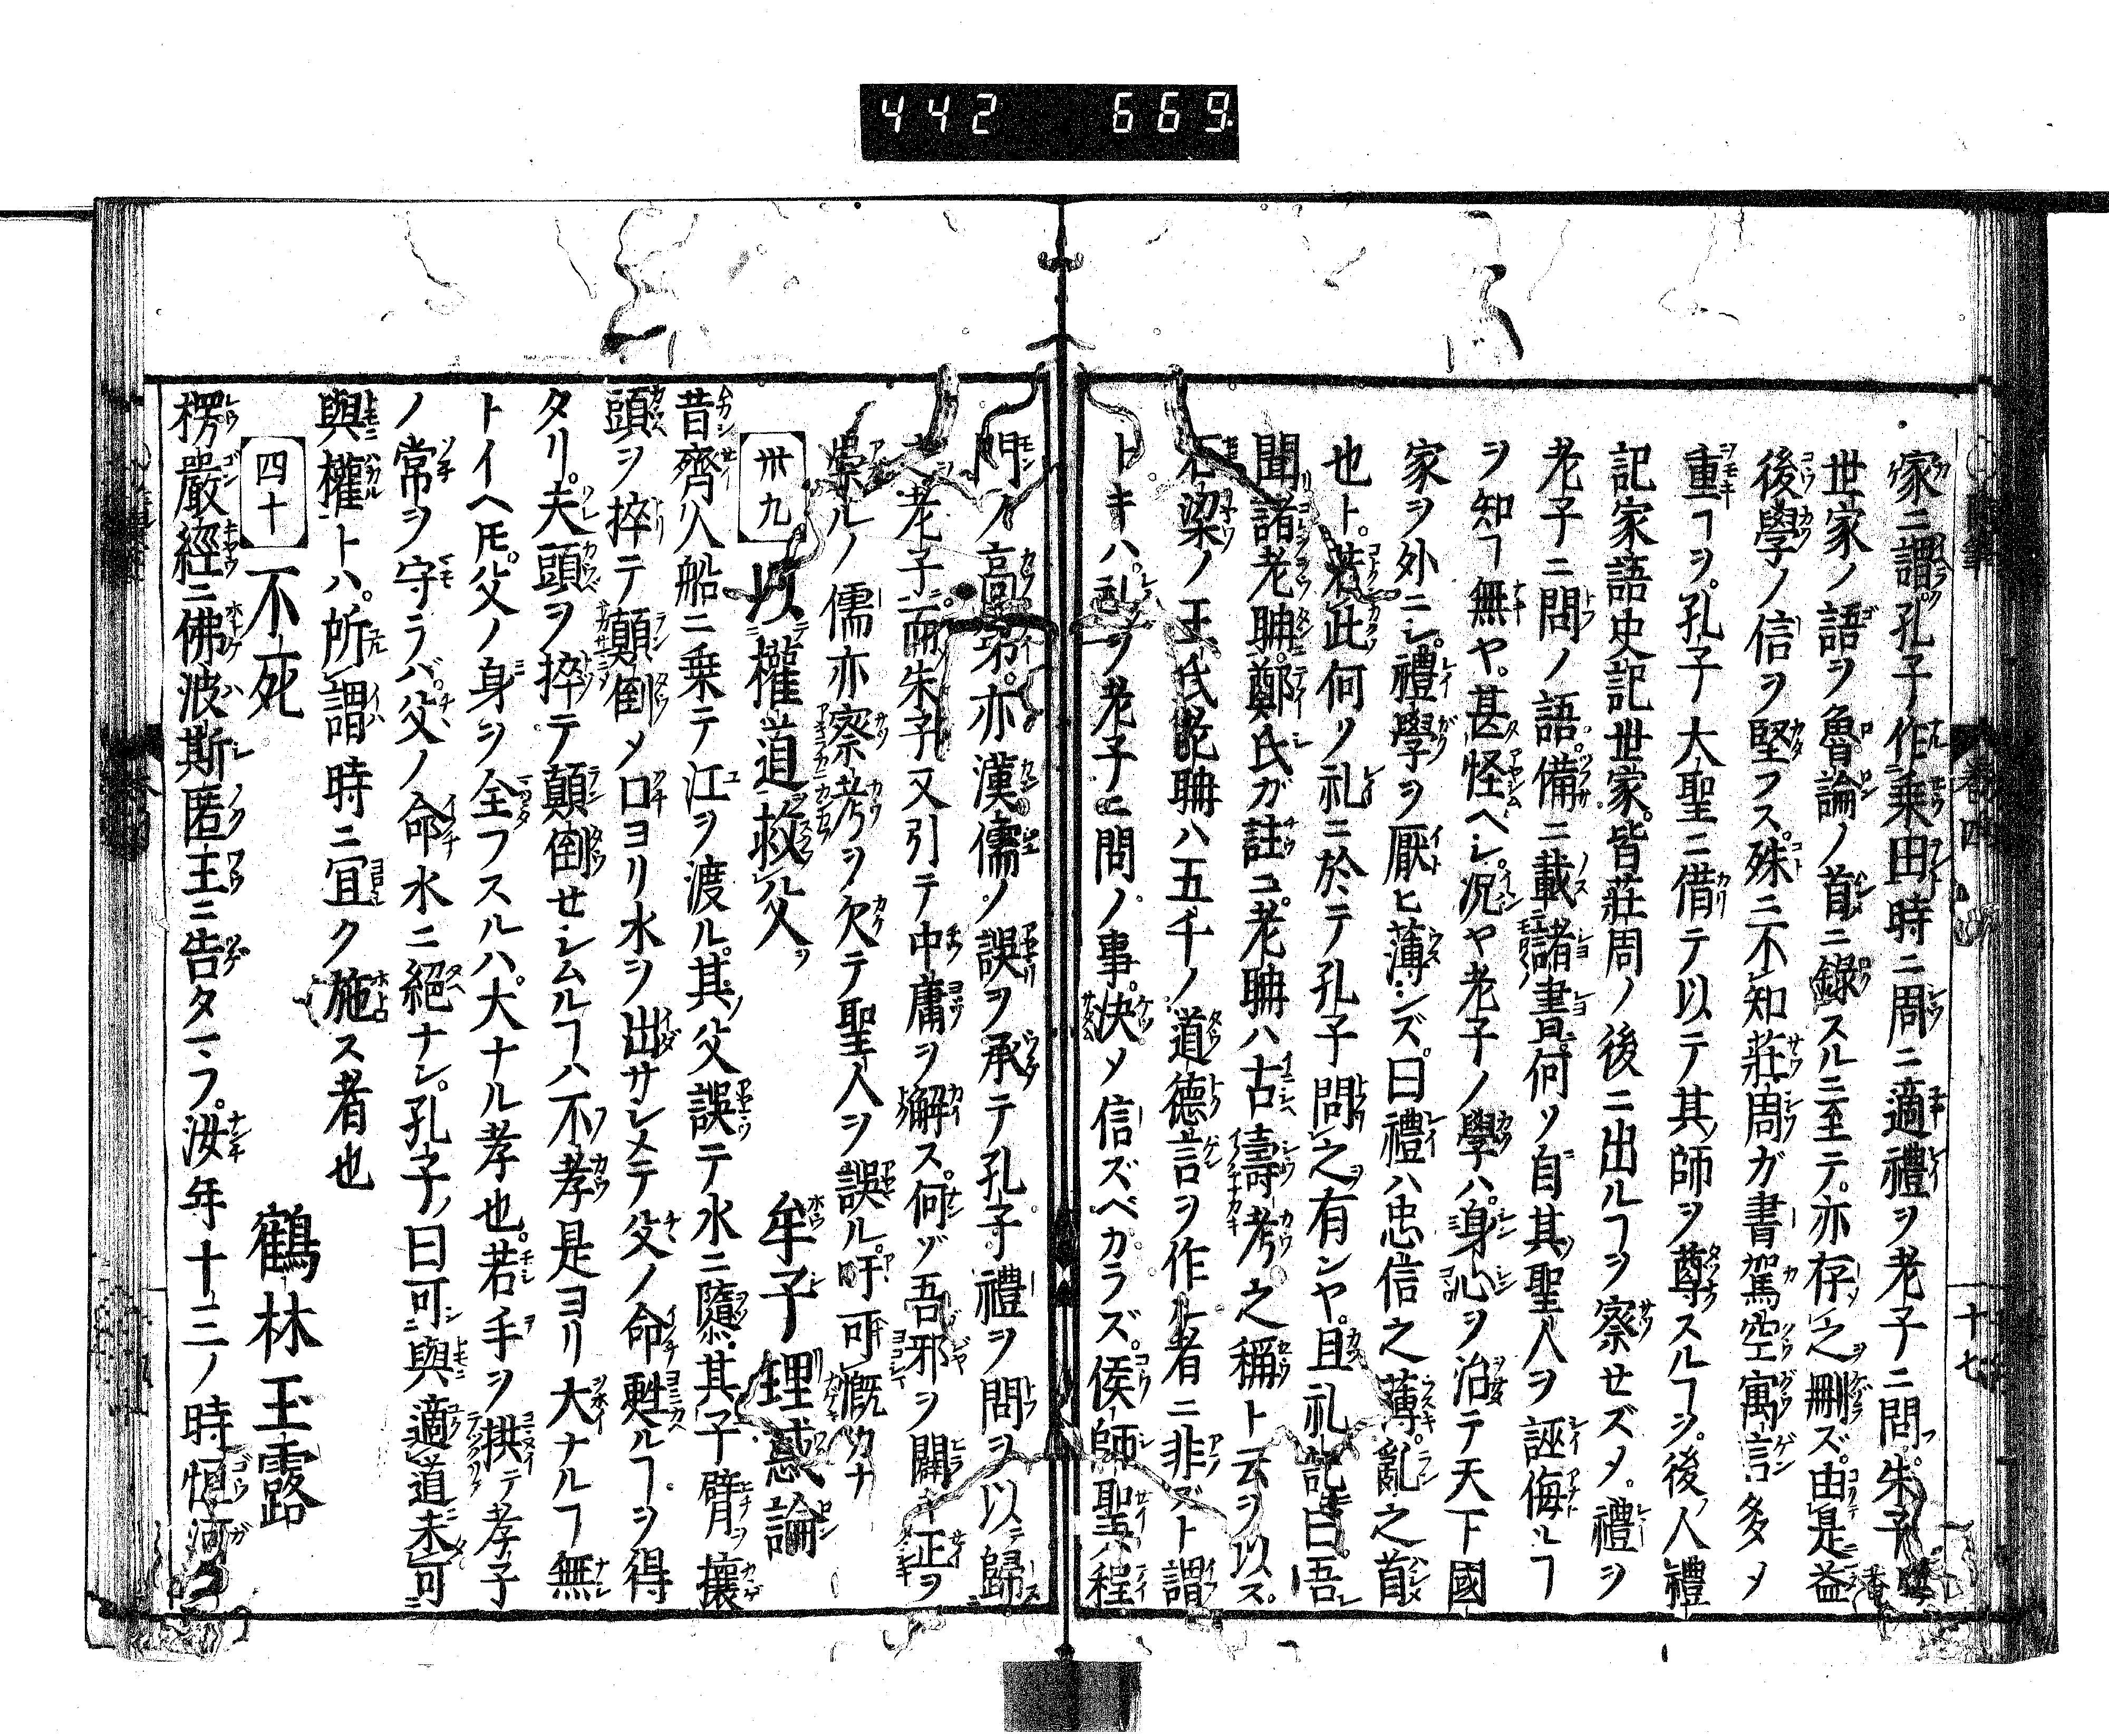 442 669.
家ニ謂孔子作乗田時ニ周ニ適禮ヲ老子ニ問朱子
世家ノ語ヲ魯論ノ首ニ録スルニ至テ亦存之刪ズ由是益
後學ノ信ヲ堅フス殊ニ不知莊周ガ書駕空寓言多メ
重ヿヲ孔子大聖ニ借テ以テ其師ヲ尊スルヿヲ後人禮
記家語史記世家皆莊周ノ後ニ出ルヿヲ察セズメ禮ヲ
老子ニ問ノ語備ニ載諸書何ソ自其聖人ヲ誣侮ルヿ
ヲ知ヿ無ヤ甚怪ヘシ況ヤ老子ノ學ハ身心ヲ治テ天下國
家ヲ外ニシ禮學ヲ厭ヒ薄ンズ曰禮ハ忠信之薄亂之首
也ト若此何ソ礼ニ於テ孔子問之有ンヤ且礼記曰吾
聞諸老聃鄭氏ガ註ニ老聃ハ古壽考之稱ト云ヲ以ス
石梁ノ王氏老聃ハ五千ノ道德言ヲ作ル者ニ非ズト謂
トキハ礼ヲ老子ニ問ノ事決メ信ズベカラズ侯師聖ハ程
門ノ高弟亦漢儒ノ誤ヲ承テ孔子禮ヲ問ヲ以テ歸
老子而朱子又引テ中庸ヲ解ス何ゾ吾邪ヲ闢キ正ヲ
崇ルノ儒亦察考ヲ欠テ聖人ヲ誤ル吁可慨カナ
卅九 以權道救父 牟子理惑論
昔齊人船ニ乗テ江ヲ渡ル其父誤テ水ニ墮其子臂ヲ攘
頭ヲ捽テ顛倒メ口ヨリ水ヲ出サシメテ父ノ命甦ルヿヲ得
タリ夫頭ヲ捽テ顛倒セシムルヿハ不孝是ヨリ大ナルヿ無
トイヘ𪜈父ノ身ヲ全フスルハ大ナル孝也若手ヲ拱テ孝子
ノ常ヲ守ラバ父ノ命水ニ絕ナン孔子ノ曰可與適道未可
與權トハ所謂時ニ宜ク施ス者也
四十 不死 鶴林玉露
楞嚴經ニ佛波斯匿王ニ告タマフ汝年十三ノ時恒河
十七